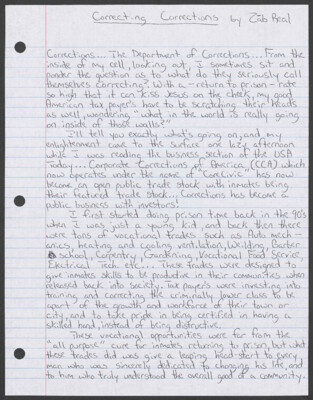 Correcting Corrections by Zeb Beal
Corrections... The Department of Corrections... From the
inside of my cell, looking out, I sometimes sit and
ponder the question as to "what do they seriously call
themselves correcting?. With a -return to prison- rate
so high that it can "kiss Jesus on the cheek, my good
American tax payers have to be scratching their heads
as well, wondering, "what in the world is really going
on inside of those walls?"
I'll tell you exactly what's going on, and my
enlightenment came to the surface one lazy afternoon
while I was reading the business section of the USA
Today... Corporate Corrections of America, (CCA) which
now operates under the name of "CoreCivic" has now
become an open public trade stock with inmates being
their featured trade stock... Corrections has become a
public business with investors!
I first started doing prison time back in the 90's
when I was just a young kid, and back then there
were tons of vocational trades such as Auto mech-
anics, heating and cooling ventilation, Welding, Barber
school, Carpentry, Gardening, Vocational Food Service,
Electrical Tech, etc... These trades were designed to
give inmates skills to be productive in their communities when
released back into society. Tax payers were investing into
training, and correcting the criminally lower class to be
apart of the growth and workforce of their town or
city, and to take pride in being certified in having a
skilled hand, instead of being distructive.
These vocational opportunities were far from the
"all purpose" cure for inmates returning to prison, but what
these trades did was give a leaping head-start to every
man who was sincerely dedicated to changing his life, and
to him who truly understood the overall good of a community.